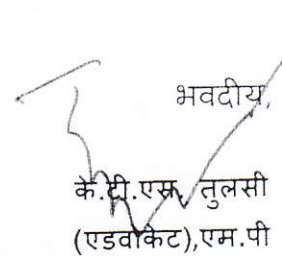 भवदीय,
के.टी.एस. तुलसी
(एडवोकेट),एम.पी